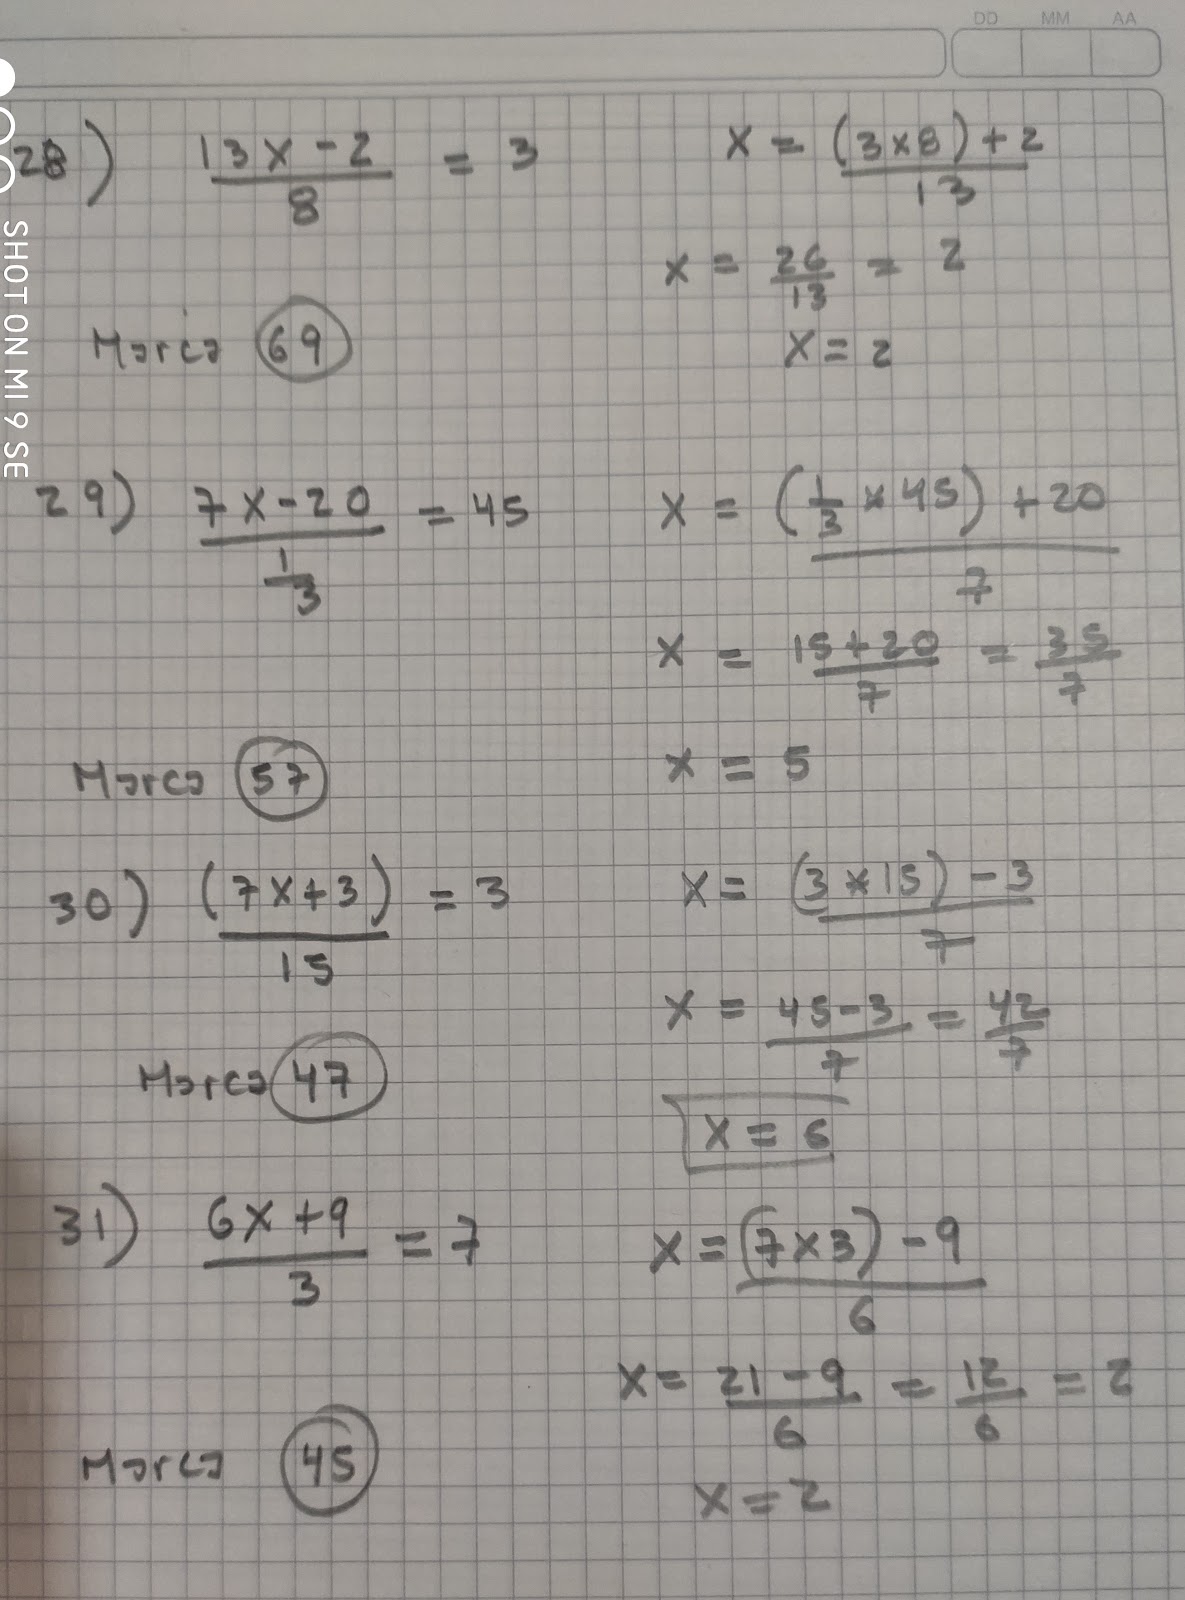 DD MM AA
28) (13x - 2)/8 = 3
x = ((3x8) + 2)/13
x = 26/13 = 2
x = 2
Marca 69
29) (7x - 20)/(1/3) = 45
x = ((1/3 * 45) + 20)/7
x = (15 + 20)/7 = 35/7
x = 5
Marca 57
30) (7x + 3)/15 = 3
x = ((3 * 15) - 3)/7
x = (45 - 3)/7 = 42/7
x = 6
Marca 47
31) (6x + 9)/3 = 7
x = ((7x3) - 9)/6
x = (21 - 9)/6 = 12/6 = 2
x = 2
Marca 45
SHOT ON MI 9 SE